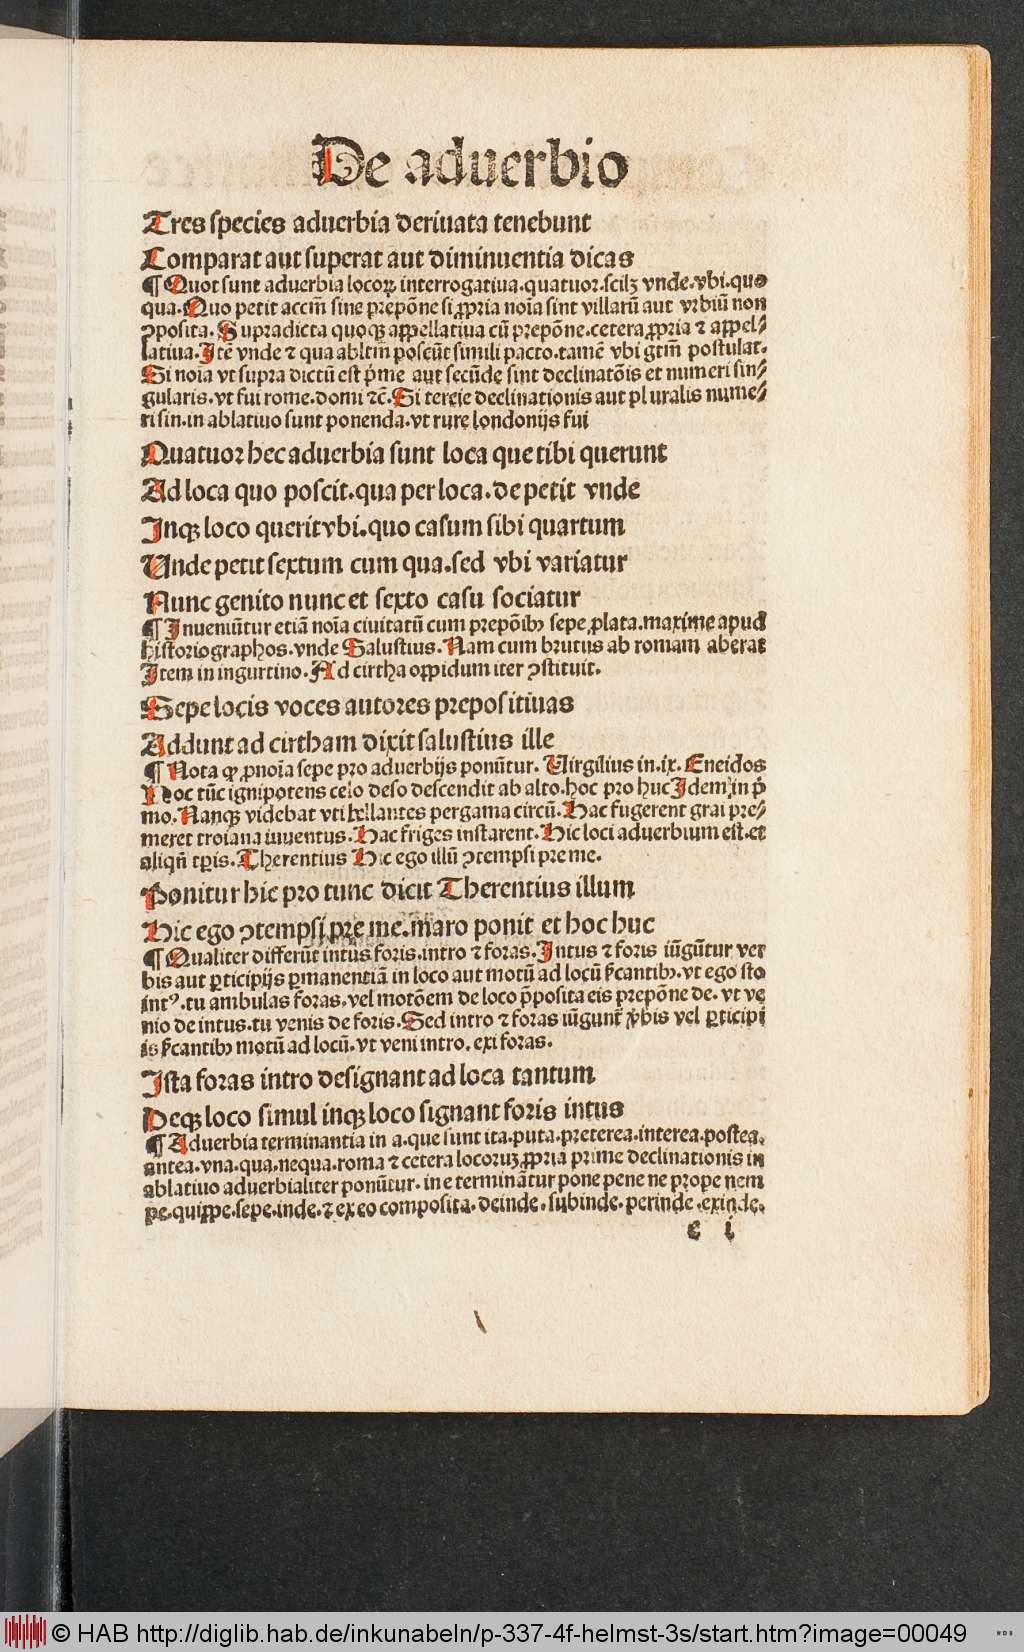 De aduerbio
Tres species aduerbia deriuata tenebunt
Comparat aut superat aut diminuentia dicas
¶ Quot sunt aduerbia locoꝝ interrogatiua.quatuor.scilꝫ vnde.vbi.quo
qua.Quo petit accm̄ sine prepōne si ꝓpria noīa sint villarū aut vrbiū non
ꝯposita.Supradicta quoqꝫ appellatiua cū prepōne.cetera ꝓpria ⁊ appel⸗
latiua.Itē vnde ⁊ qua abltm̄ poscūt simili pacto.tamē vbi gtm̄ postulat.
Si noīa vt supra dictū est p̄me aut secūde sint declinatōis et numeri sin⸗
gularis.vt fui rome.domi ⁊c̄.Si tercie declinationis aut pluralis nume⸗
ri sin.in ablatiuo sunt ponenda.vt rure londonijs fui
Quatuor hec aduerbia sunt loca que tibi querunt
Ad loca quo poscit.qua per loca.de petit vnde
Inqꝫ loco querit vbi.quo casum sibi quartum
Unde petit sextum cum qua.sed vbi variatur
Nunc genito nunc et sexto casu sociatur
¶ Inueniūtur etiā noīa ciuitatū cum prepōibꝫ sepe ꝓlata.maxime apud
historiographos.vnde Salustius.Nam cum brutus ab romam aberat
Item in ingurtino.Ad cirtha oppidum iter ꝯstituit.
Sepe locis voces autores prepositiuas
Addunt ad cirtham dixit salustius ille
¶ Nota ꝙ ꝓnoīa sepe pro aduerbijs ponūtur. Virgilius in.ix.Eneidos
Hoc tūc ignipotens celo deso descendit ab alto.hoc pro huc Idem in p̄
mo.Nanqꝫ videbat vti bellantes pergama circū.Hac fugerent grai pre⸗
meret troiana iuuentus.Hac friges instarent.Hic loci aduerbium est.et
aliqn̄ tꝑis.Therentius Hic ego illū ꝯtempsi pre me.
Ponitur hic pro tunc dicit Therentius illum
Hic ego ꝯtempsi pre me.maro ponit et hoc huc
¶ Qualiter differūt intus foris.intro ⁊ foras.Intus ⁊ foris iūgūtur ver
bis aut ꝑticipijs ꝑmanentiā in loco aut motū ad locū ẜcantibꝫ.vt ego sto
intꝰ.tu ambulas foras.vel motōem de loco p̄posita eis prepōne de. vt ve
nio de intus.tu venis de foris.Sed intro ⁊ foras iūgunt̄ v̄bis vel ꝑticipi
is ẜcantibꝫ motū ad locū.vt veni intro.exi foras.
Ista foras intro designant ad loca tantum
Deqꝫ loco simul inqꝫ loco signant foris intus
¶ Aduerbia terminantia in a.que sunt ita.puta.preterea.interea.postea.
antea.vna.qua.nequa.roma ⁊ cetera locoruꝫ ꝓpria prime declinationis in
ablatiuo aduerbialiter ponūtur.in e terminātur pone pene ne prope nem
pe.quippe.sepe.inde.⁊ ex eo composita.deinde.subinde.perinde.exinde.
e i
© HAB http://diglib.hab.de/inkunabeln/p-337-4f-helmst-3s/start.htm?image=00049